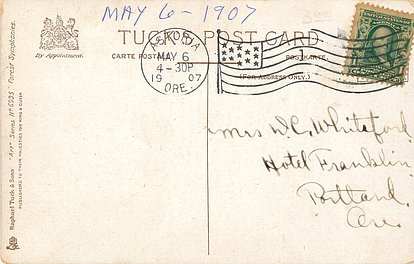 MAY 6-1907
TUCK'S POST CARD
CARTE POSTALE
POSTKARTE
(FOR ADDRESS ONLY.)
By Appointment.
ASTORIA
MAY
6
4-30P
1907
ORE.
1
Mrs D.C. Whiteford
Hotel Franklin
Portland
Ore.
Raphael Tuck & Sons' "Art" Series No 6235 "Forest Symphonies."
PUBLISHERS TO THEIR MAJESTIES THE KING & QUEEN